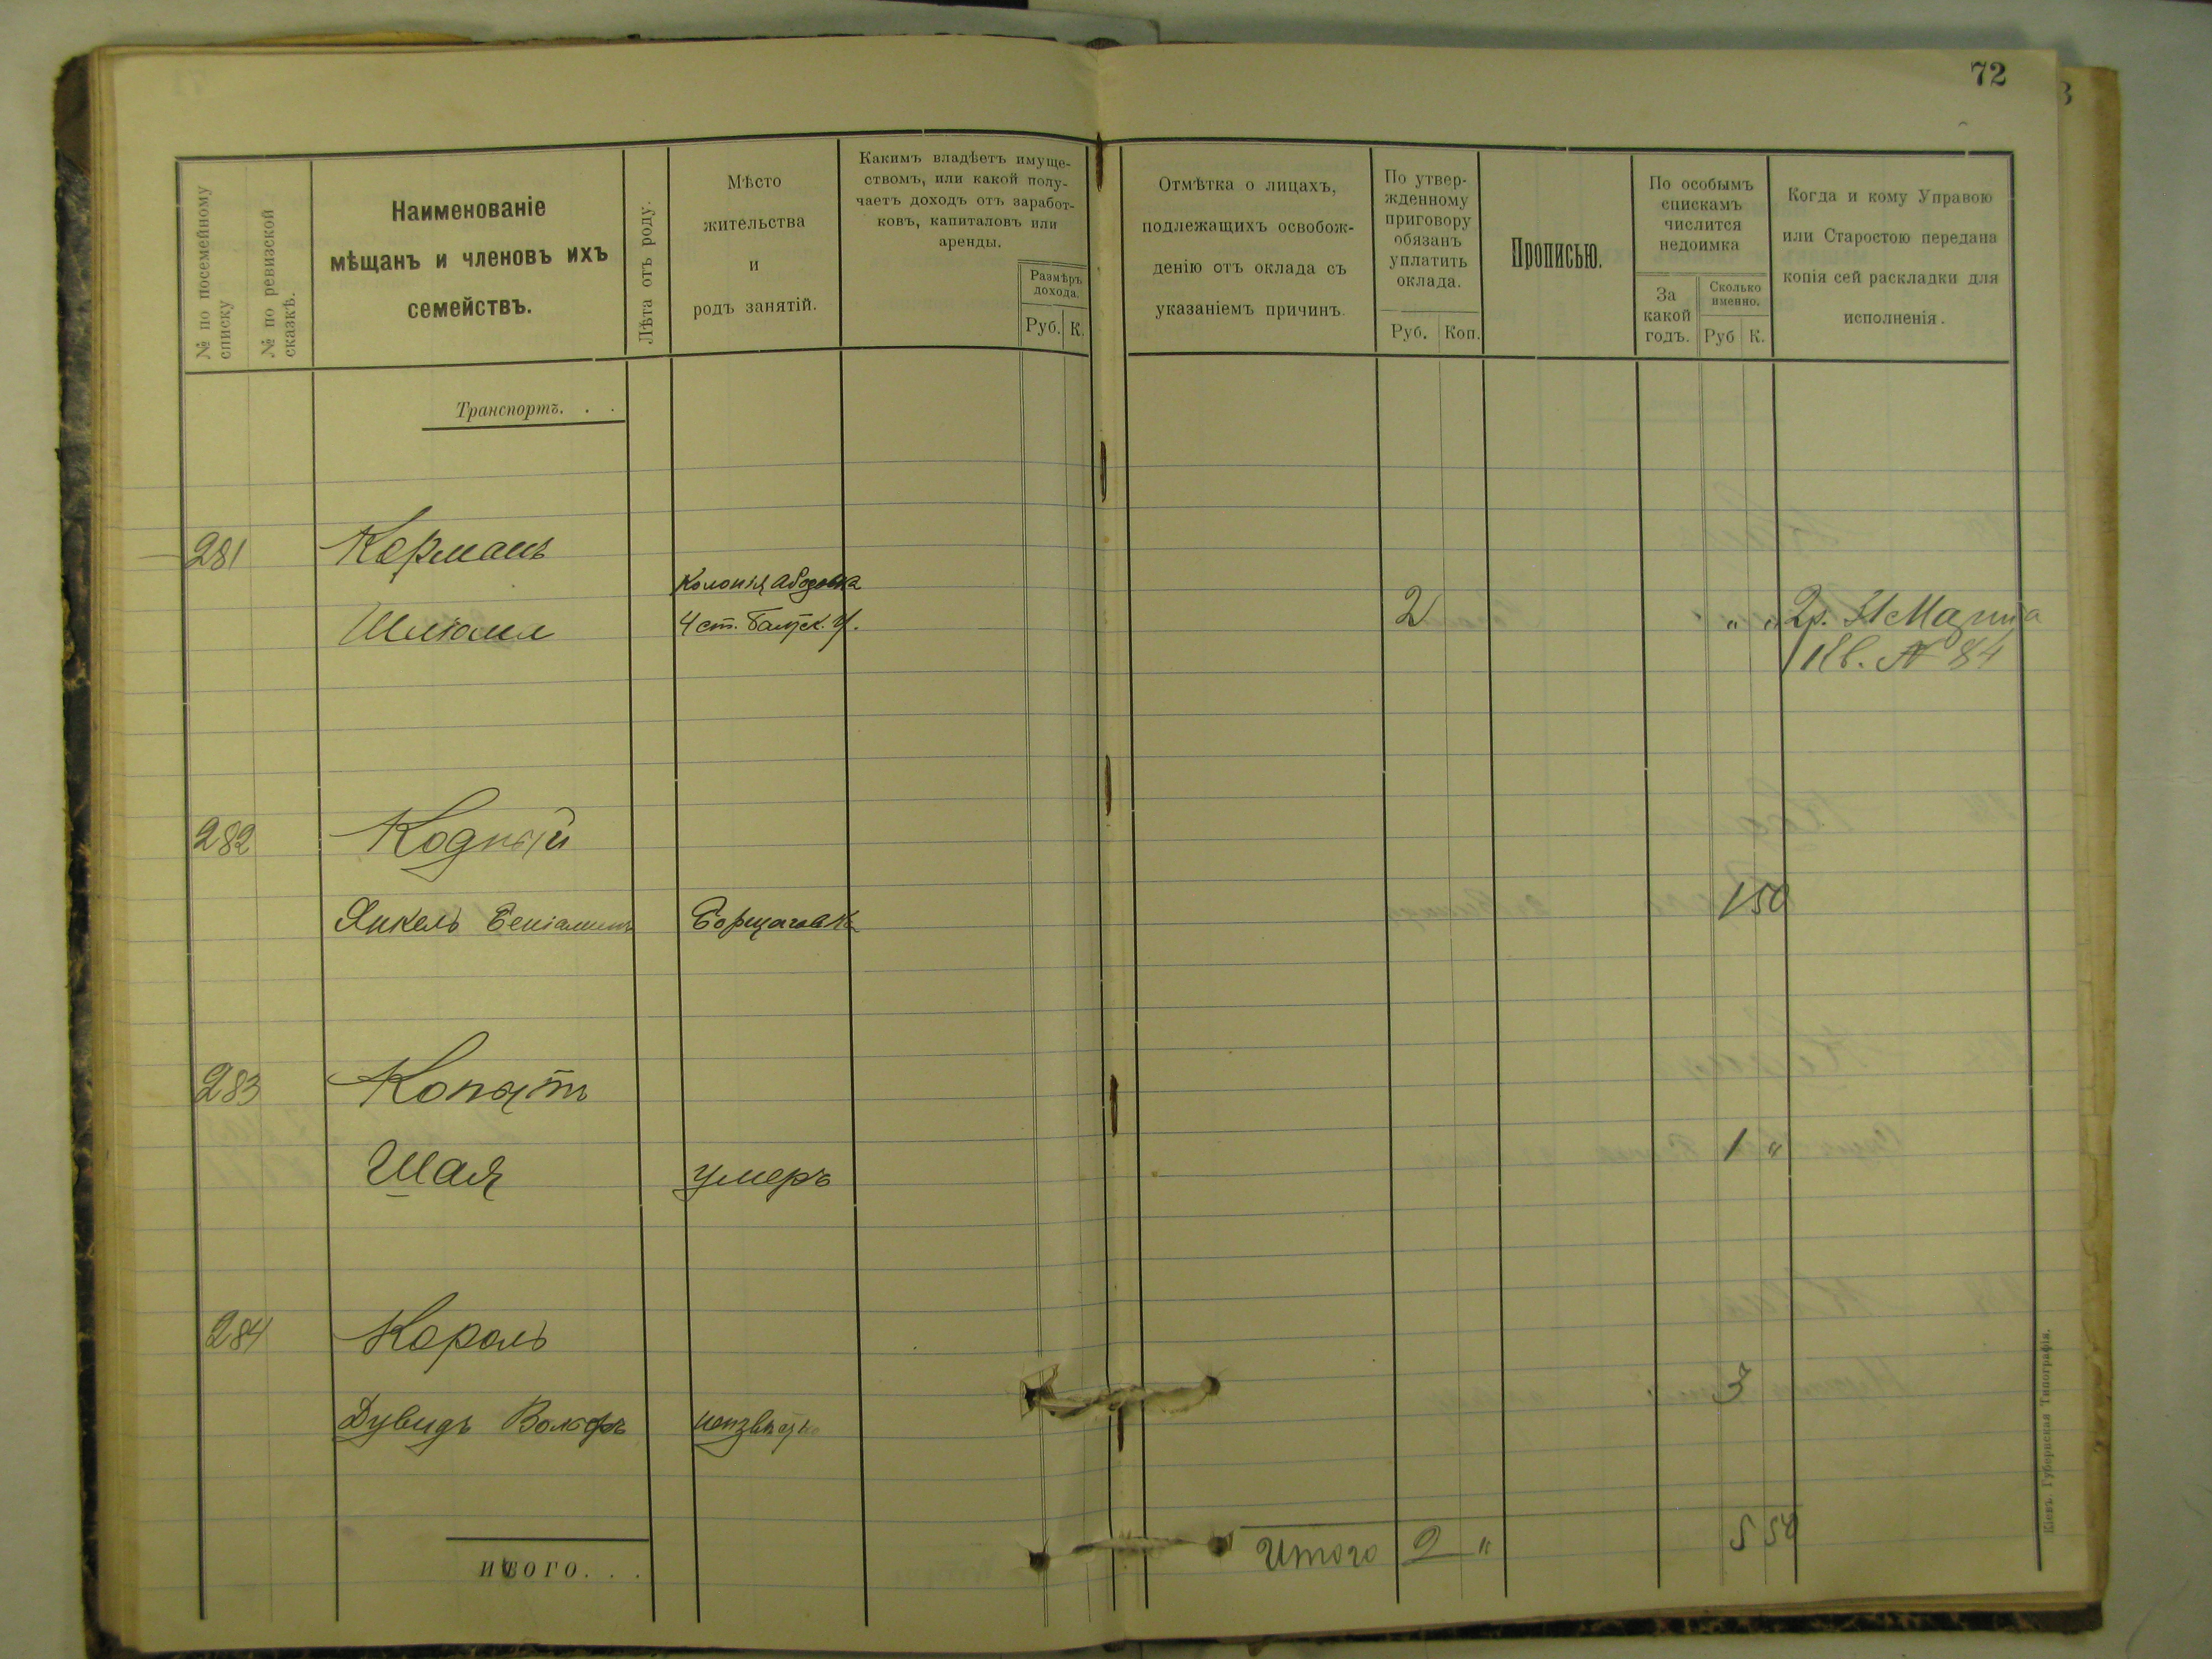 72
№ по посемейному списку
№ по ревизской сказкѣ.
Наименованіе
мѣщанъ и членовъ ихъ
семействъ.
Лѣта отъ роду.
Мѣсто
жительства
и
родъ занятій.
Какимъ владѣетъ имуще-
ствомъ, или какой полу-
чаетъ доходъ отъ заработ-
ковъ, капиталовъ или
аренды.
Размѣръ
дохода.
Руб. К.
Отмѣтка о лицахъ,
подлежащихъ освобож-
денію отъ оклада съ
указаніемъ причинъ.
По утвер-
жденному
приговору
обязанъ
уплатить
оклада.
Руб. Коп.
Прописью.
По особымъ
спискамъ
числится
недоимка
За
какой
годъ.
Сколько
именно.
Руб К.
Когда и кому Управою
или Старостою передана
копія сей раскладки для
исполненія.
Транспортъ. . .
281 Керманъ
Колонія Абазовка
Шлиома 4 ст. Балтск. У. 2 " " 2р. 31 Марта
Кв. № 84
282 Кодный
Янкель Беніаминъ Борщаговка 1 50
283 Копытъ
Шая умеръ 1 "
284 Король
Дувидъ Вольфъ неизвѣстно 3
Итого 2 " 5 50
ИТОГО. . .
Кіевъ. Губернская Типографія.